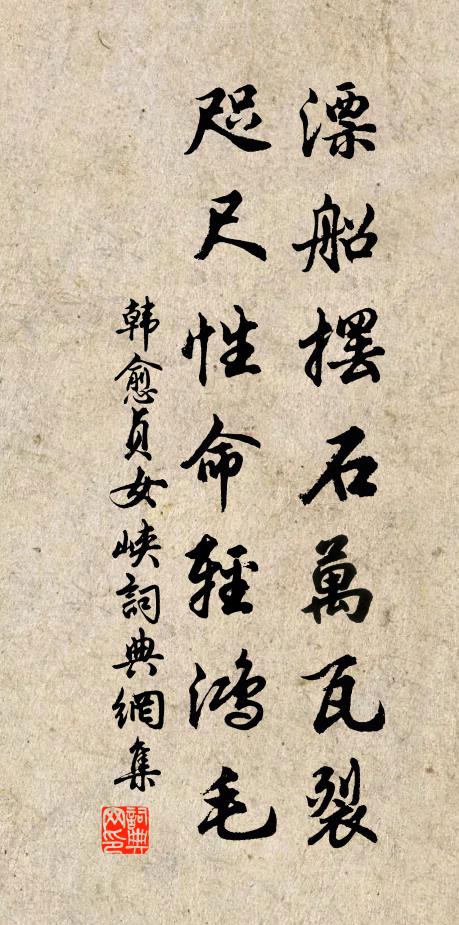 漂船擺石萬瓦裂
咫尺性命輕鴻毛
韩愈貞女峡詞典網集
詞典網印